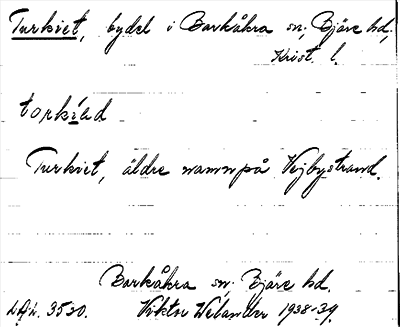 Turkviet, bydel i Barkåkra sn; Bjäre hd,
Krist. l.
Turkviet, äldre namn på Vejbystrand.
Barkåkra sn; Bjäre hd.
3520. Viktor Welander 1938-39.